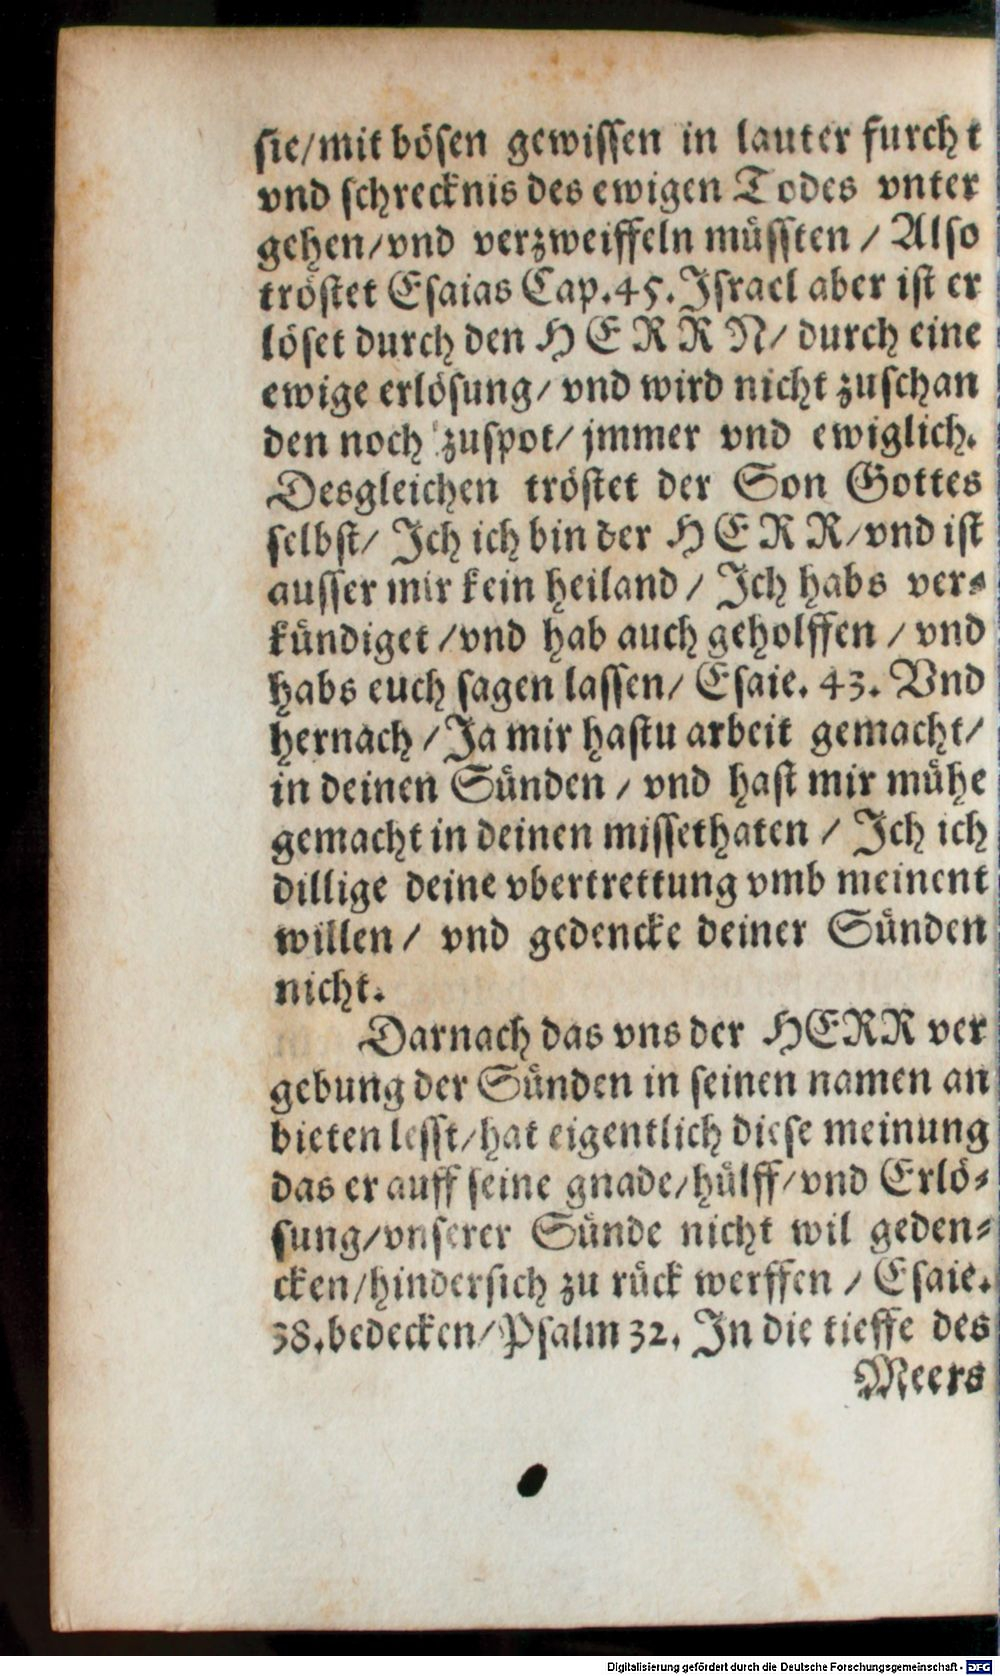 sie/mit bösen gewissen in lauter furcht
vnd schrecknis des ewigen Todes vnter
gehen/vnd verzweiffeln müssten / Also
tröstet Esaias Cap.45. Israel aber ist er
löset durch den HERRN/ durch eine
ewige erlösung/ vnd wird nicht zuschan
den noch zuspot/ jmmer vnd ewiglich.
Desgleichen tröstet der Son Gottes
selbst/ Ich ich bin der HERR/vnd ist
ausser mir kein heiland / Ich habs ver-
kündiget /vnd hab auch geholffen / vnd
habs euch sagen lassen/ Esaie. 43. Vnd
hernach / Ja mir hastu arbeit gemacht/
in deinen Sünden / vnd hast mir mühe
gemacht in deinen missethaten / Ich ich
dillige deine vbertrettung vmb meinent
willen / vnd gedencke deiner Sünden
nicht.
Darnach das vns der HERR ver
gebung der Sünden in seinen namen an
bieten lesst/hat eigentlich diese meinung
das er auff seine gnade/hülff/vnd Erlö-
sung/vnserer Sünde nicht wil geden-
cken/hindersich zu rück werffen / Esaie.
38.bedecken/Psalm 32. In die tieffe des
Meers
Digitalisierung gefördert durch die Deutsche Forschungsgemeinschaft - DFG